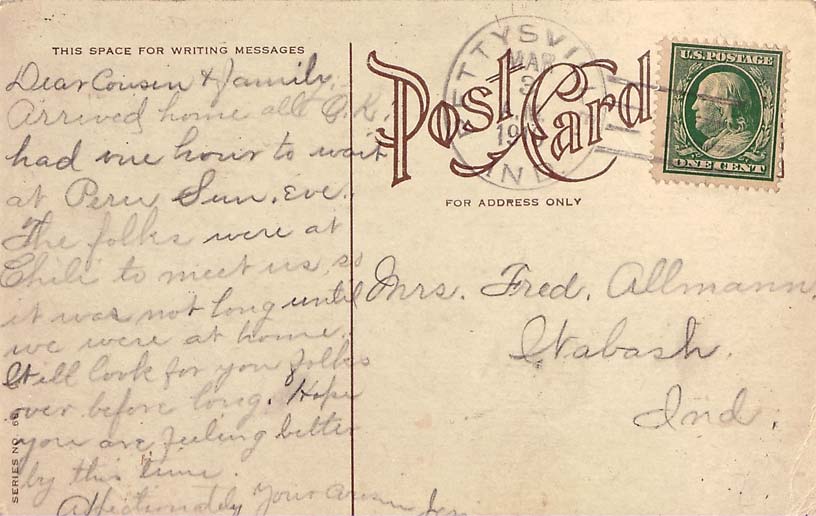 THIS SPACE FOR WRITING MESSAGES
Dear Cousin & family,
Arrived home all O.K.,
had one hour to wait
at Peru Sun. Eve.
The folks were at
Chili to meet us, so
it was not long until
we were at home.
Will look for you folks
over before long. Hope
you are feeling better
by this time.
Affectionately Your Cousin
SERIES NO.
Post Card
FOR ADDRESS ONLY
MAR
3
IND.
U.S. POSTAGE
ONE CENT
Mrs. Fred. Allmann,
Wabash.
Ind.